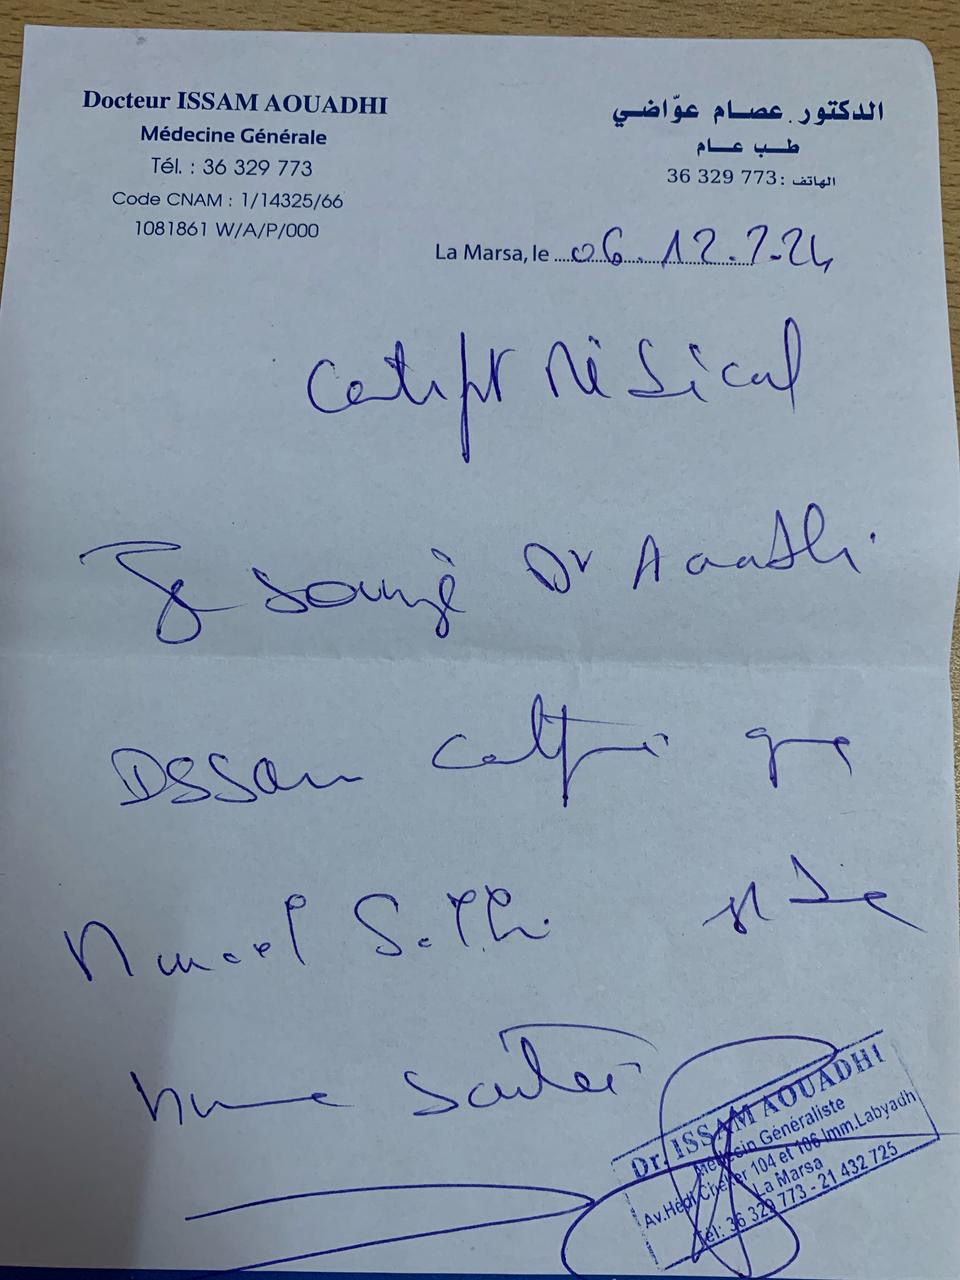 Docteur ISSAM AOUADHI
Médecine Générale
Tél. : 36 329 773
Code CNAM : 1/14325/66
1081861 W/A/P/000
الدكتور عصام عوّاضي
طب عام
الهاتف : 36 329 773
La Marsa, le 06.12.2024
Certificat Médical
Je soussigné Dr Aouadhi
Issam certifie que
est de
bonne santé
Dr. ISSAM AOUADHI
Médecin Généraliste
Av.Hédi Chaker 104 et 106 Imm.Labyadh
La Marsa
Tél: 36 329 773 - 21 432 725